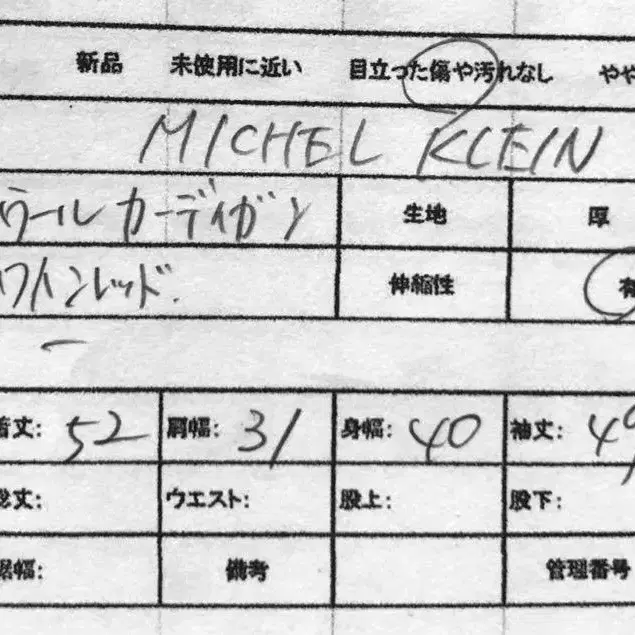 新品 未使用に近い 目立った傷や汚れなし やや
MICHEL KLEIN
ウールカーディガン 生地 厚
ワインレッド. 伸縮性 有
着丈: 52 肩幅: 31 身幅: 40 袖丈: 49
総丈: ウエスト: 股上: 股下:
裾幅: 備考 管理番号